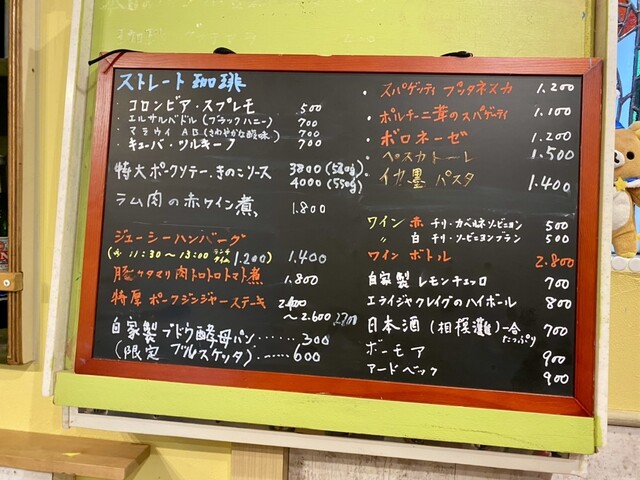 ストレート珈琲
・コロンビア・スプレモ 500
・エルサルバドル(ブラックハニー) 700
・マラウイ AB(さわやかな酸味) 700
・キューバ・ツルキーノ 700
特大ポークソテー・きのこソース 3800(530g)
4000(550g)
ラム肉の赤ワイン煮 1.800
ジューシーハンバーグ
11:30〜13:00 ランチタイム 1.200) 1.400
豚カタマリ肉トロトロトマト煮 1.800
特厚ポークジンジャーステーキ
〜2.600 2700
自家製ブドウ酵母パン……300
(限定ブルスケッタ)……600
・スパゲッティ プッタネスカ 1.200
・ポルチーニ茸のスパゲティ 1.100
・ボロネーゼ 1.200
・ペスカトーレ 1.500
・イカ墨 パスタ 1.400
ワイン 赤 チリ・カベルネソービニヨン 500
〃 白 チリ・ソービニヨンブラン 500
ワイン ボトル 2.800
自家製 レモンチェロ 700
エライジャクレイグのハイボール 800
日本酒(相模灘)一合 たっぷり 700
ボーモア 900
アードベック 900